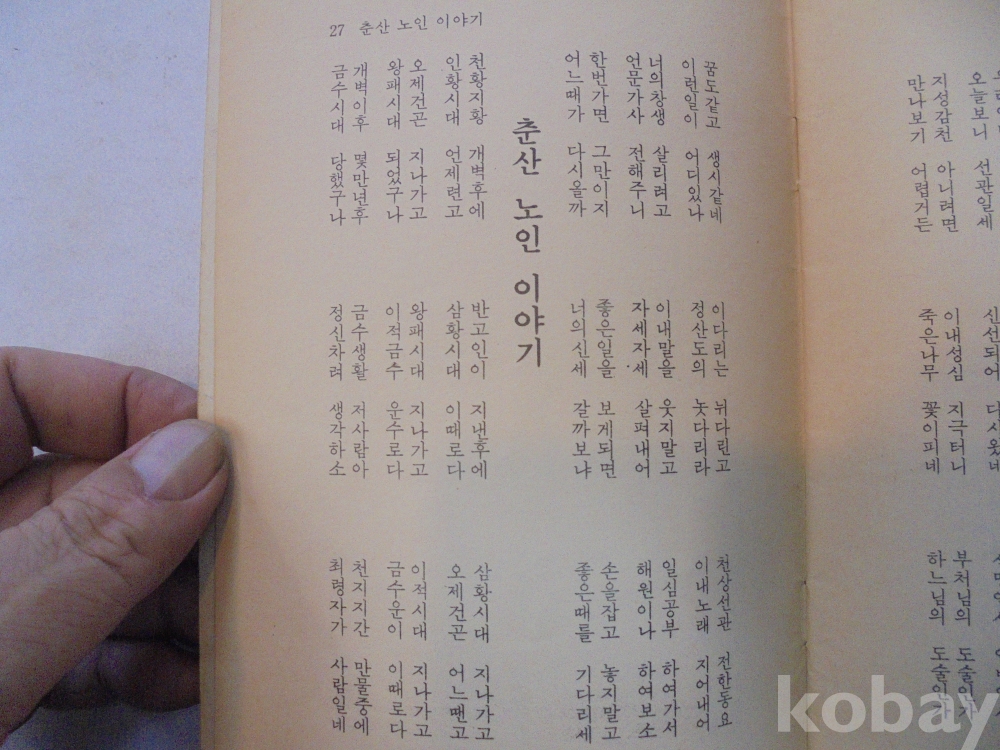 오늘보니 선관일세
신선되어 다시왔네
지성감천 아니려면
만나보기 어렵거든
이내성심 지극터니
죽은나무 꽃이피네
부처님의 도술인가
하느님의 도술인가
27 춘산 노인 이야기
꿈도같고 생시같네
이런일이 어디있나
이다리는 뉘다린고
정산도의 놋다리라
천상선관 전한동요
이내노래 지어내어
너의창생 살리려고
언문가사 전해주니
이내말을 웃지말고
자세자세 살펴내어
일심공부 하여가서
해원이나 하여보소
한번가면 그만이지
어느때가 다시올까
좋은일을 보게되면
너의신세 갈까보냐
손을잡고 놓지말고
좋은때를 기다리세
춘산 노인 이야기
천황지황 개벽후에
인황시대 언제련고
반고인이 지낸후에
삼황시대 이때로다
삼황시대 지나가고
오제건곤 어느땐고
오제건곤 지나가고
왕패시대 되었구나
왕패시대 지나가고
이적금수 운수로다
이적시대 지나가고
금수운이 이때로다
개벽이후 몇만년후
금수시대 당했구나
금수생활 저사람아
정신차려 생각하소
천지지간 만물중에
최령자가 사람일네
kobay